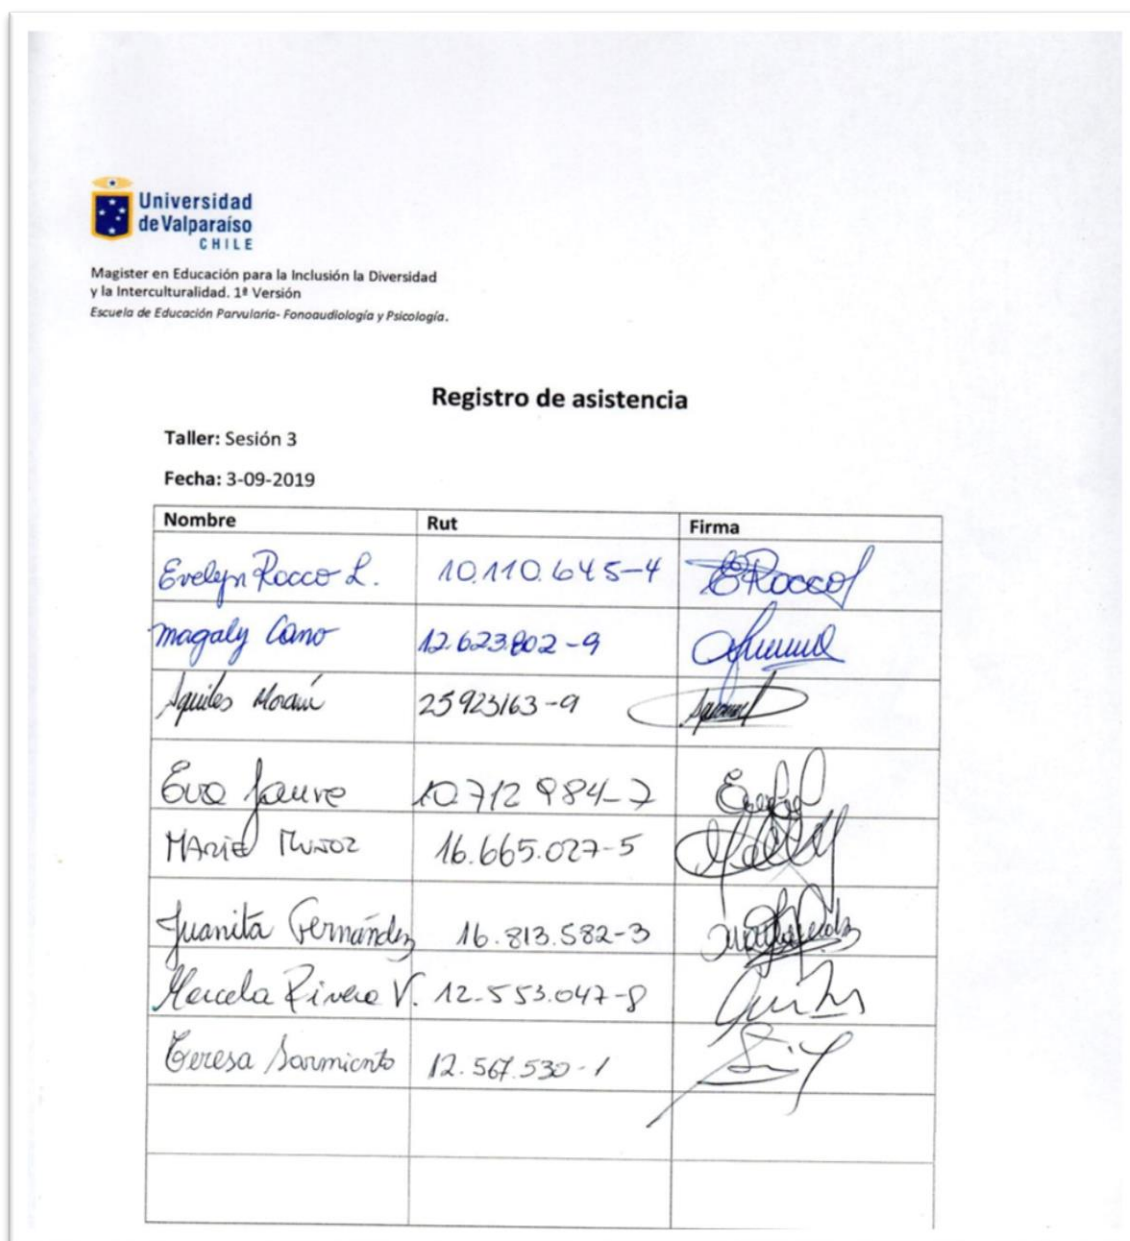 Universidad
de Valparaíso
CHILE
Magister en Educación para la Inclusión la Diversidad
y la Interculturalidad. 1ª Versión
Escuela de Educación Parvularia- Fonoaudiología y Psicología.
Registro de asistencia
Taller: Sesión 3
Fecha: 3-09-2019
Nombre Rut Firma
Evelyn Rocco L. 10.110.645-4 ERocco
magaly Cano 12.623.802-9
Aquiles 25923163-9
Eva Jaure 10712984-7
MARIEL MUÑOZ 16.665.027-5
Juanita Fernández 16.813.582-3
Marcela Rivera V. 12.553.047-8
Teresa Sarmiento 12.567.530-1